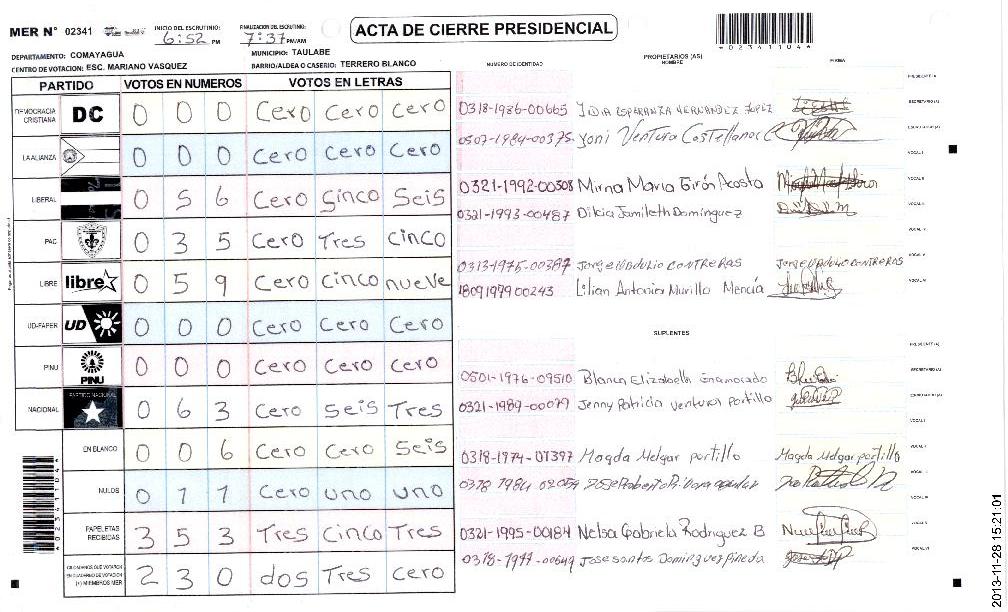 MER N° 02341 INICIO DEL ESCRUTINIO: 6:52 PM FINALIZACION DEL ESCRUTINIO: 7:37 PM/AM ACTA DE CIERRE PRESIDENCIAL
* 0 2 3 4 1 1 0 4 *
DEPARTAMENTO: COMAYAGUA MUNICIPIO: TAULABE
CENTRO DE VOTACION: ESC. MARIANO VASQUEZ BARRIO/ALDEA O CASERIO: TERRERO BLANCO
PARTIDO VOTOS EN NUMEROS VOTOS EN LETRAS
DEMOCRACIA CRISTIANA DC 0 0 0 Cero Cero Cero
LA ALIANZA 0 0 0 Cero Cero Cero
LIBERAL 0 5 6 Cero Sinco Seis
PAC 0 3 5 Cero Tres Cinco
LIBRE libre 0 5 9 Cero cinco nueve
UD-FAPER UD 0 0 0 Cero Cero Cero
PINU PINU 0 0 0 Cero Cero Cero
NACIONAL PARTIDO NACIONAL 0 6 3 Cero Seis Tres
EN BLANCO 0 0 6 Cero Cero Seis
NULOS 0 1 1 Cero uno uno
PAPELETAS RECIBIDAS 3 5 3 Tres Cinco Tres
CIUDADANOS QUE VOTARON EN CUADERNO DE VOTACION (+) MIEMBROS MER 2 3 0 dos Tres Cero
NUMERO DE IDENTIDAD PROPIETARIOS (AS) NOMBRE FIRMA
PRESIDENTE(A)
0318-1986-00665 HERNANDEZ LOPEZ SECRETARIO(A)
0507-1984-00375 Yoni Ventura Castellanos ESCRUTADOR(A)
VOCAL I
0321-1992-00308 Mirna Maria Girón Acosta VOCAL II
0321-1993-00487 Dilcia Jamileth Dominguez VOCAL III
VOCAL IV
0313-1975-00387 Jorge CONTRERAS VOCAL V
1809 1979 00243 Lilian Antonia Murillo Mencía VOCAL VI
SUPLENTES
PRESIDENTE(A)
0501-1976-09510 Blanca Elizabeth Enamorado SECRETARIO(A)
0321-1989-00079 Jenny Patricia Ventura portillo ESCRUTADOR(A)
VOCAL I
0318-1974-01397 Magda Melgar portillo Magda Melgar portillo VOCAL II
Jose Roberto
VOCAL IV
0321-1995-00184 Nelsa Gabriela Rodriguez B VOCAL V
0318-1977-00649 Jose santos Dominguez Pineda VOCAL VI
2013-11-28 15:21:01